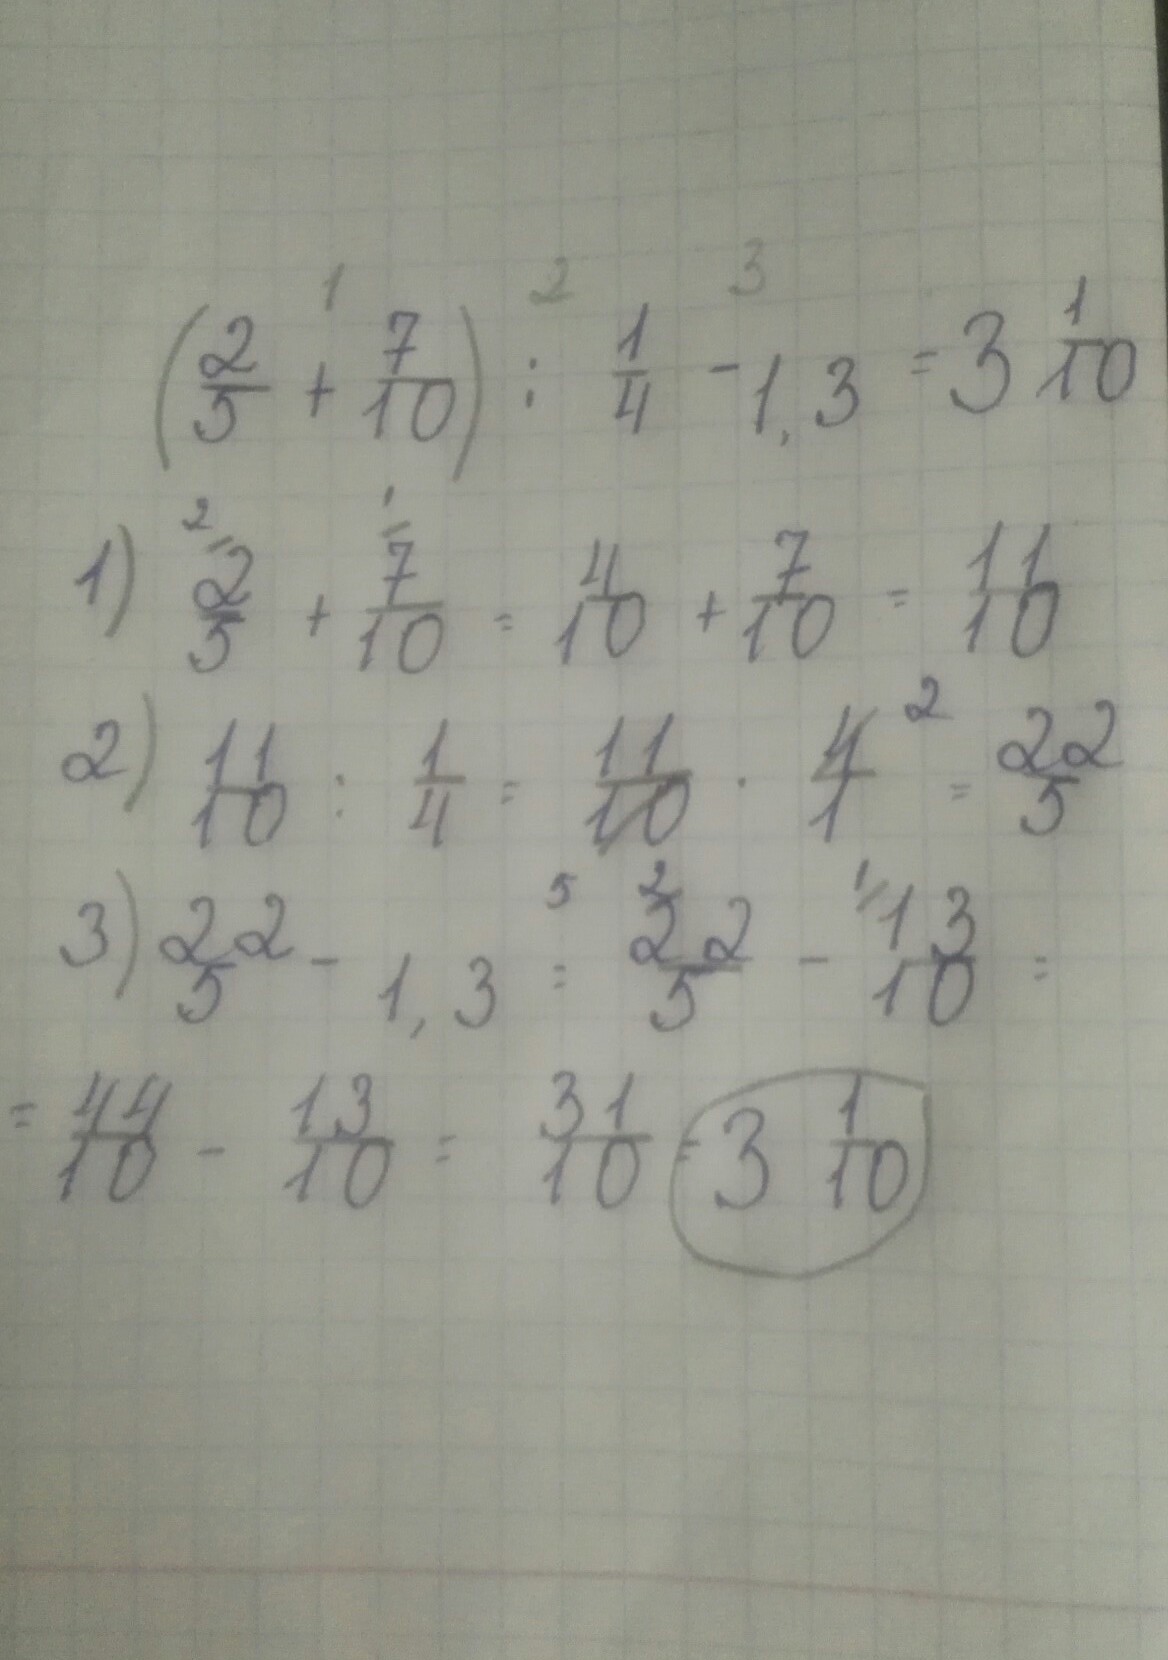 1 2 3
(2/5 + 7/10) : 1/4 - 1,3 = 3 1/10
1) 2/5 ² + 7/10 ¹ = 4/10 + 7/10 = 11/10
2) 11/10 : 1/4 = 11/10 · 4/1 ² = 22/5
5
3) 22/5 - 1,3 = 22/5 ² - 13/10 ¹ =
= 44/10 - 13/10 = 31/10 = 3 1/10